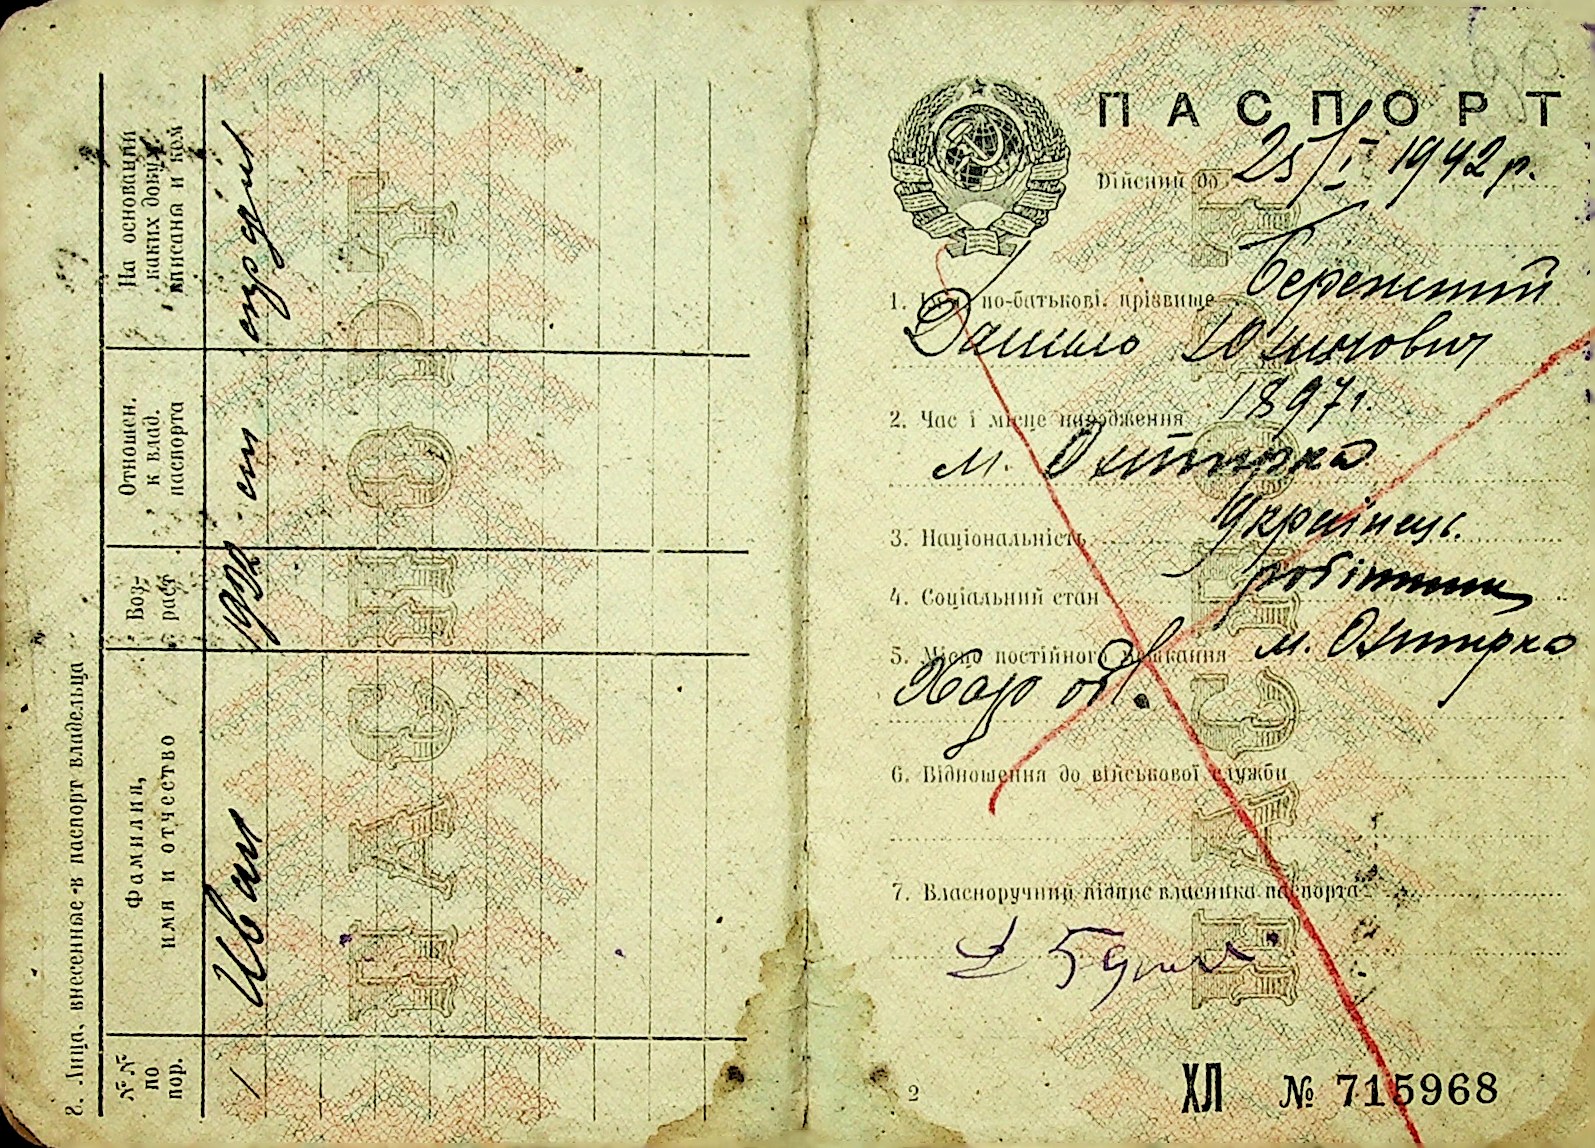 8. Лица, внесенные в паспорт владельца
№№ по пор.
Фамилия, имя и отчество
Воз-раст
Отношен. к влад. паспорта
На основании каких докум. вписаны и кем
1 Иван 1932 сын
ПАСПОРТ
ПАСПОРТ
Дійсний до 25/I 1942 р.
1. Ім'я, по-батькові, прізвище Бережний
Данило Юхимович
2. Час і місце народження 1897 г.
м. Охтирка
3. Національність Українець
4. Соціальний стан робітник
5. Місце постійного мешкання м. Охтирка
Хар обл.
6. Відношення до військової служби
7. Власноручний підпис власника паспорта
2
ХЛ № 715968